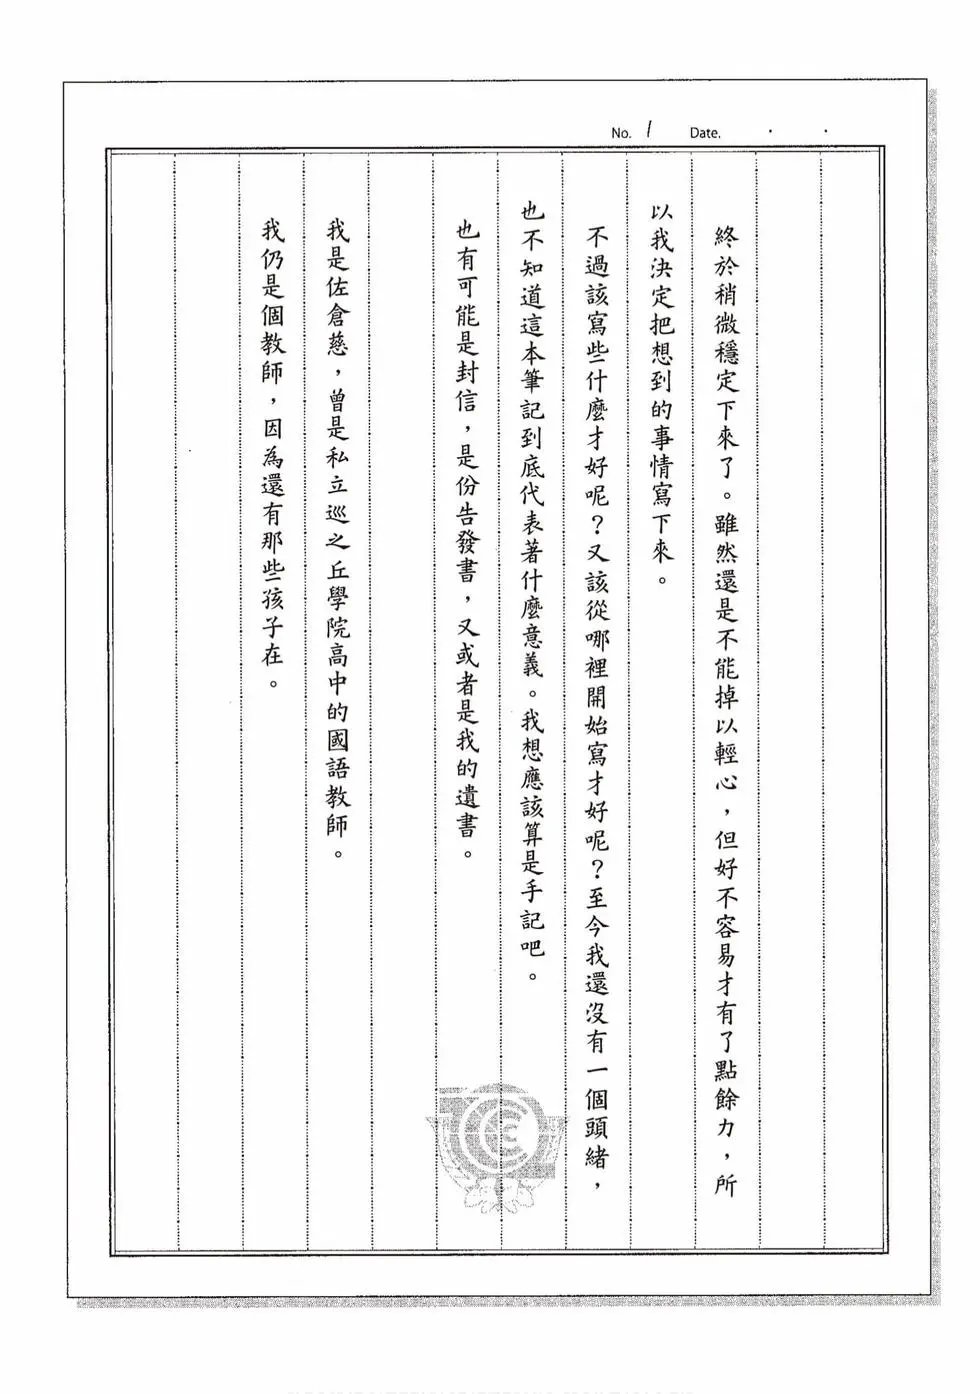 No. 1 Date. . .
終於稍微穩定下來了。雖然還是不能掉以輕心，但好不容易才有了點餘力，所
以我決定把想到的事情寫下來。
不過該寫些什麼才好呢？又該從哪裡開始寫才好呢？至今我還沒有一個頭緒，
也不知道這本筆記到底代表著什麼意義。我想應該算是手記吧。
也有可能是封信，是份告發書，又或者是我的遺書。
我是佐倉慈，曾是私立巡之丘學院高中的國語教師。
我仍是個教師，因為還有那些孩子在。